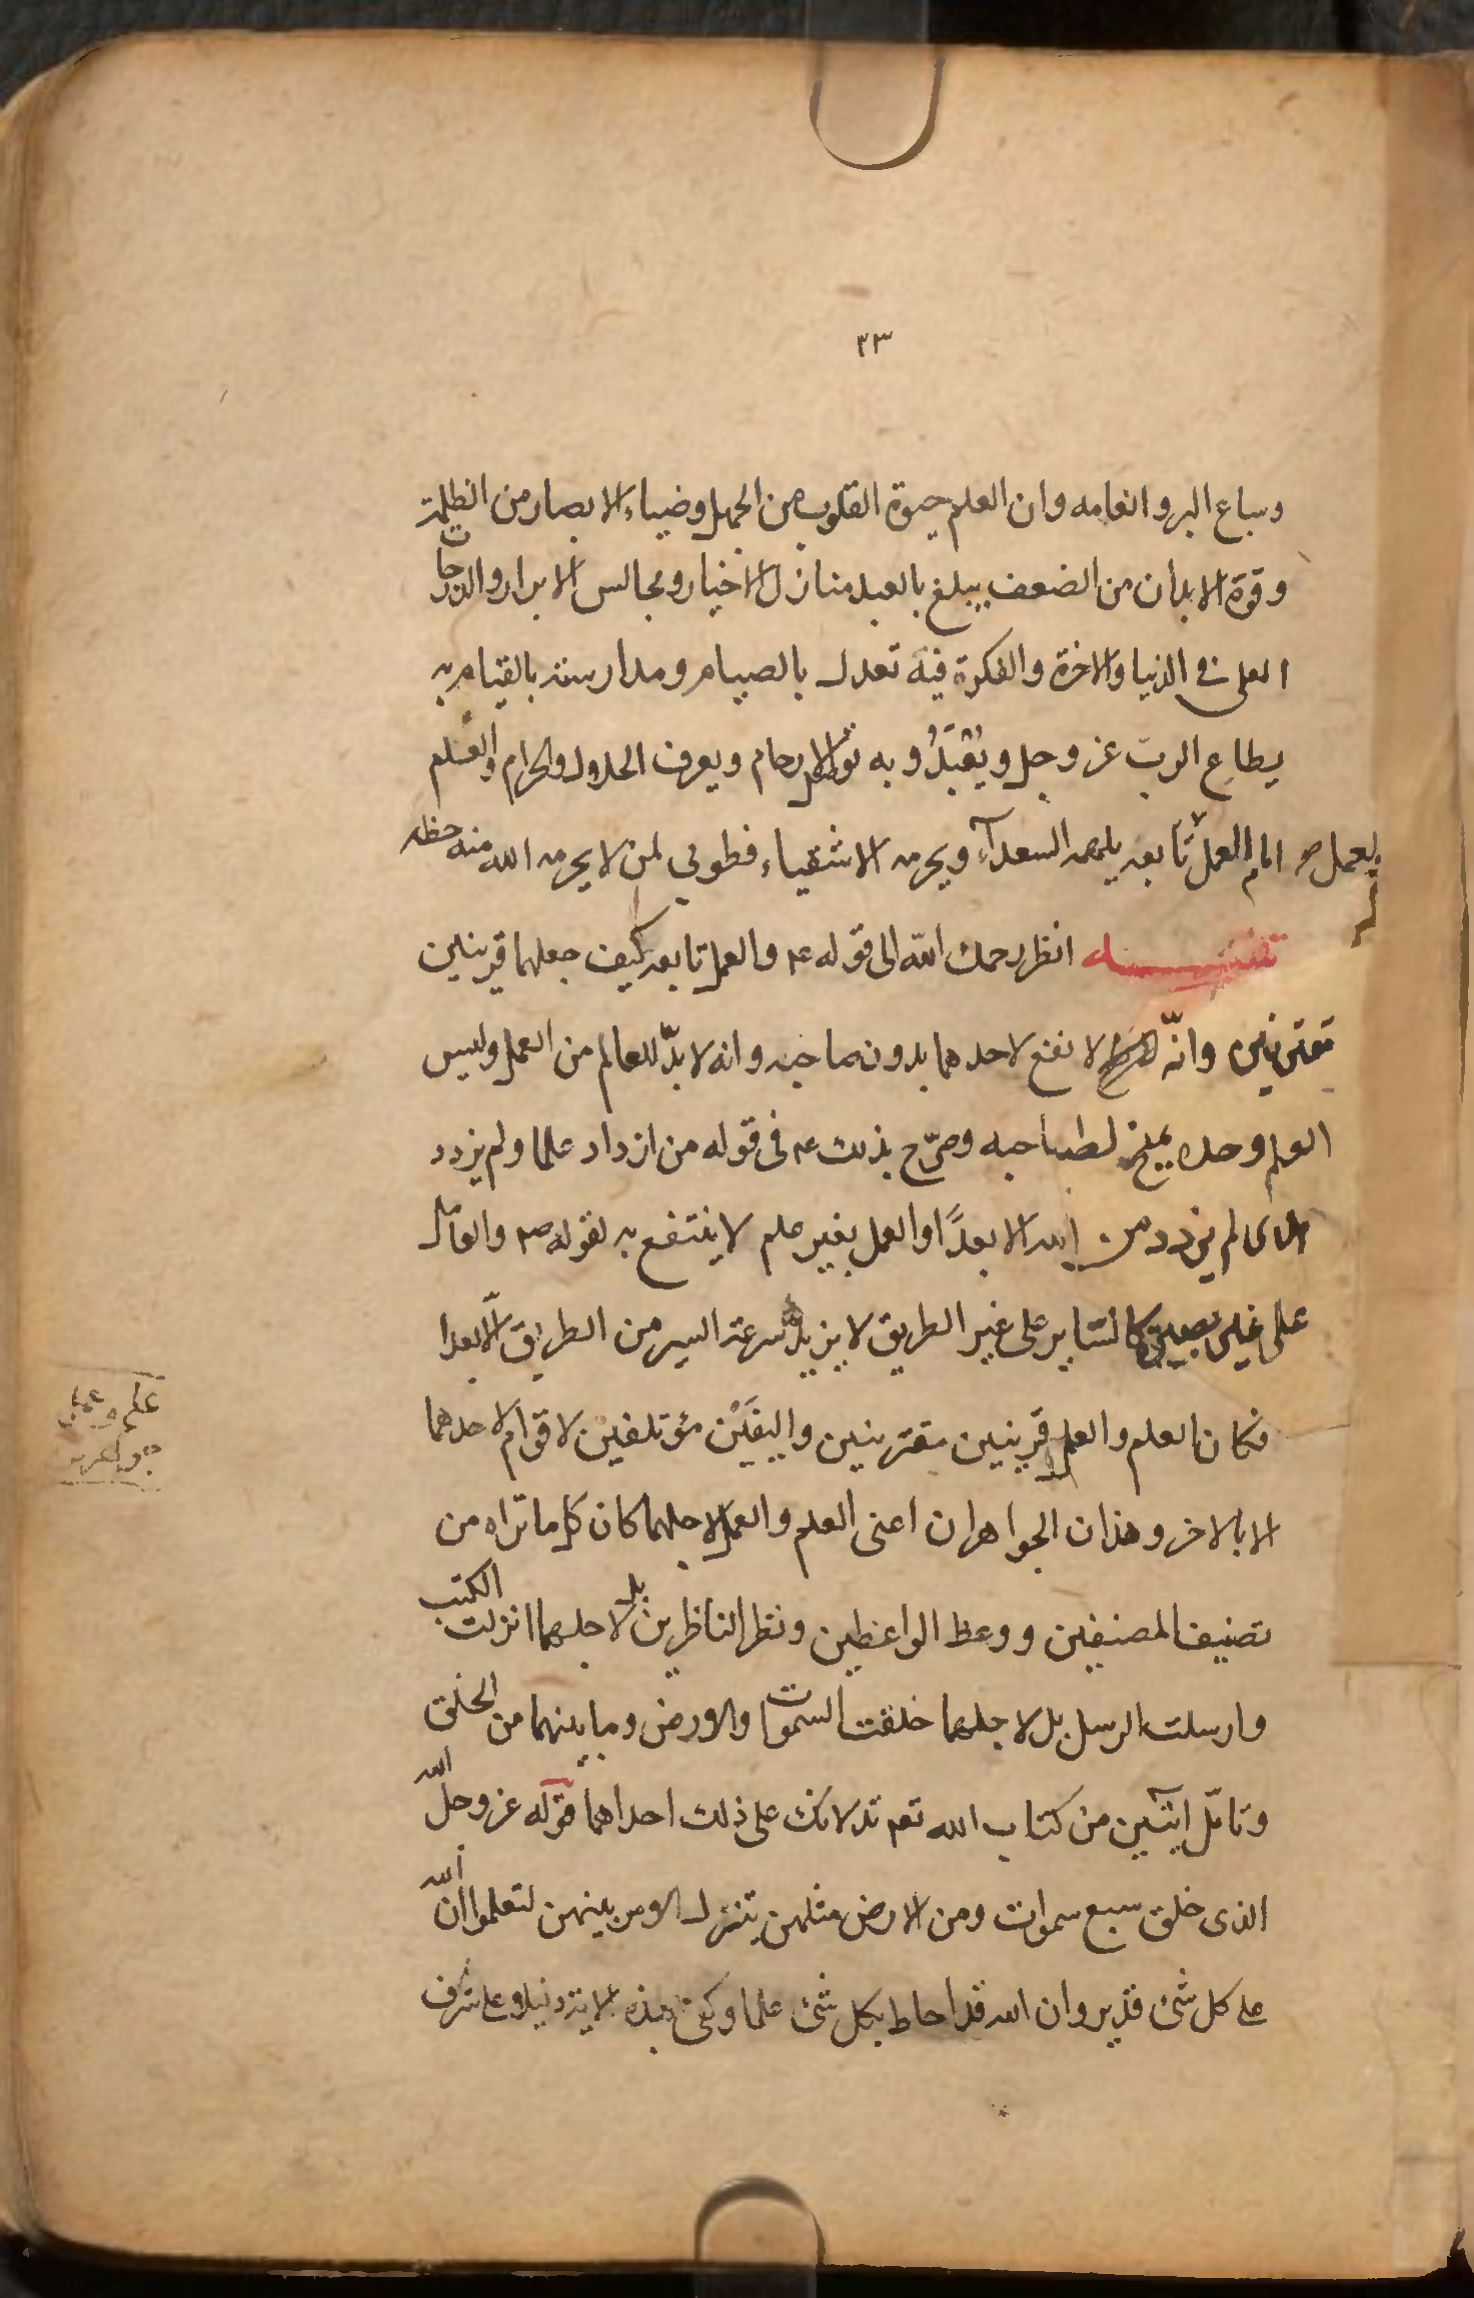 ٣٣
وسباع البر وانعامه وان العلم حيوة القلوب من الجهل وضياء الابصار من الظلمة
وقوة الابدان من الضعف يبلغ بالعبد منازل الاخيار ومجالس الابرار والدرجات
العلى فى الدنيا والاخرة والفكرة فيه تعدل بالصيام ومدارسته بالقيام به
يطاع الرب عز وجل ويُعْبَدُ وبه توصل الارحام ويعرف الحلال والحرام والعلم
امام العمل والعمل تابعه يلهمه السعدآء ويحرمه الاشقياء فطوبى لمن لا يحرمه الله منه حظه
تفسير انظر رحمك الله الى قوله ع والعمل تابعه كيف جعلهما قرينين
مقترنين وانّه لا نفع لاحدهما بدون صاحبه وانه لا بدّ للعالم من العمل وليس
العلم وحده بمنج لصاحبه وصرّح بذلك ع فى قوله من ازداد علما ولم يزدد
هدى لم يزدد من الله الا بعدًا والعمل بغير علم لا ينتفع به لقوله ص والعامل
على غير بصيرة كالساير على غير الطريق لا يزيده سرعة السير من الطريق الا بعدا
فكان العلم والعمل قرينين مقترنين واليفَيْن مؤتلفين لا قوام لاحدهما
الا بالاخر وهذان الجواهران اعنى العلم والعمل لاجلهما كان كل ما تراه من
تصنيف المصنفين ووعظ الواعظين ونظر الناظرين بل لاجلهما انزلت الكتب
وارسلت الرسل بل لاجلهما خلقت السموات والارض وما بينهما من الخلق
وتامّل ايتين من كتاب الله تعم تدلانك على ذلك احداهما قوله عز وجل الله
الذى خلق سبع سموات ومن الارض مثلهن يتنزل الامر بينهن لتعلموا ان الله
على كل شئ قدير وان الله قد احاط بكل شئ علما وكفى بهذه الاية دليلا على شرف
علم وعمل